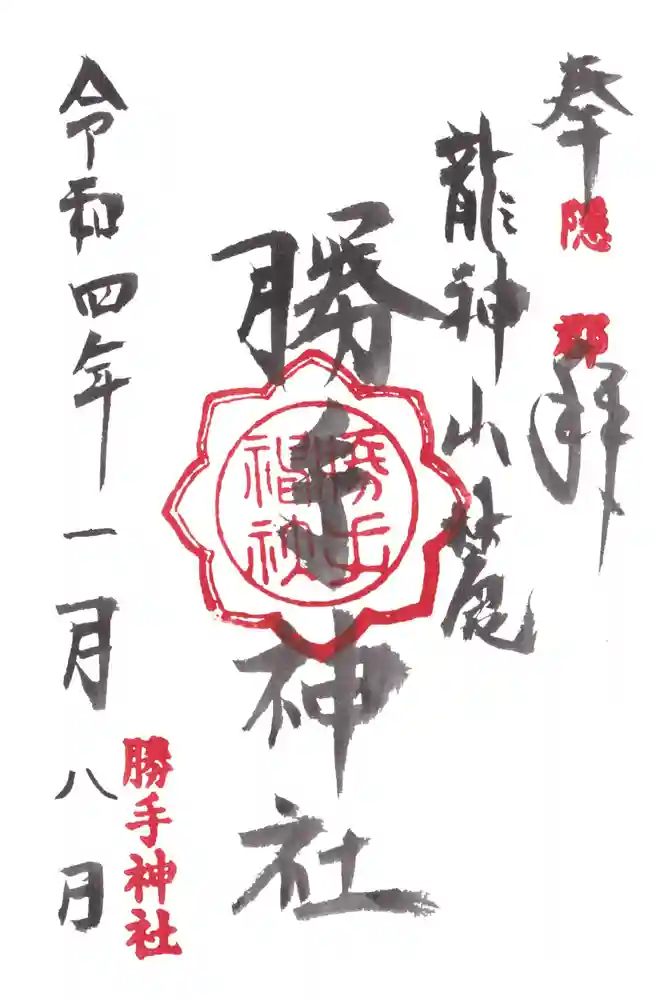 奉拝
隠
龍神山麓
勝手神社
令和四年一月八日
勝手神社